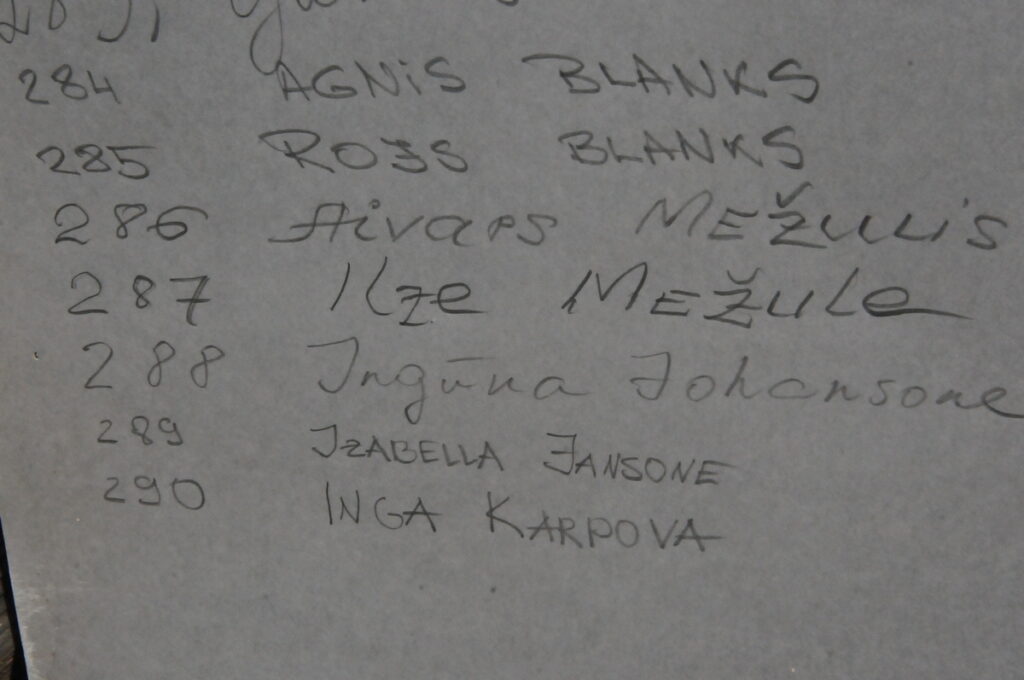 284 AGNiS BLANKS
285 ROSS BLANKS
286 Aivars MEŽULiS
287 Ilze MEŽULe
288 Ingūna Johansone
289 IZABELLA JANSONE
290 INGA KARPOVA